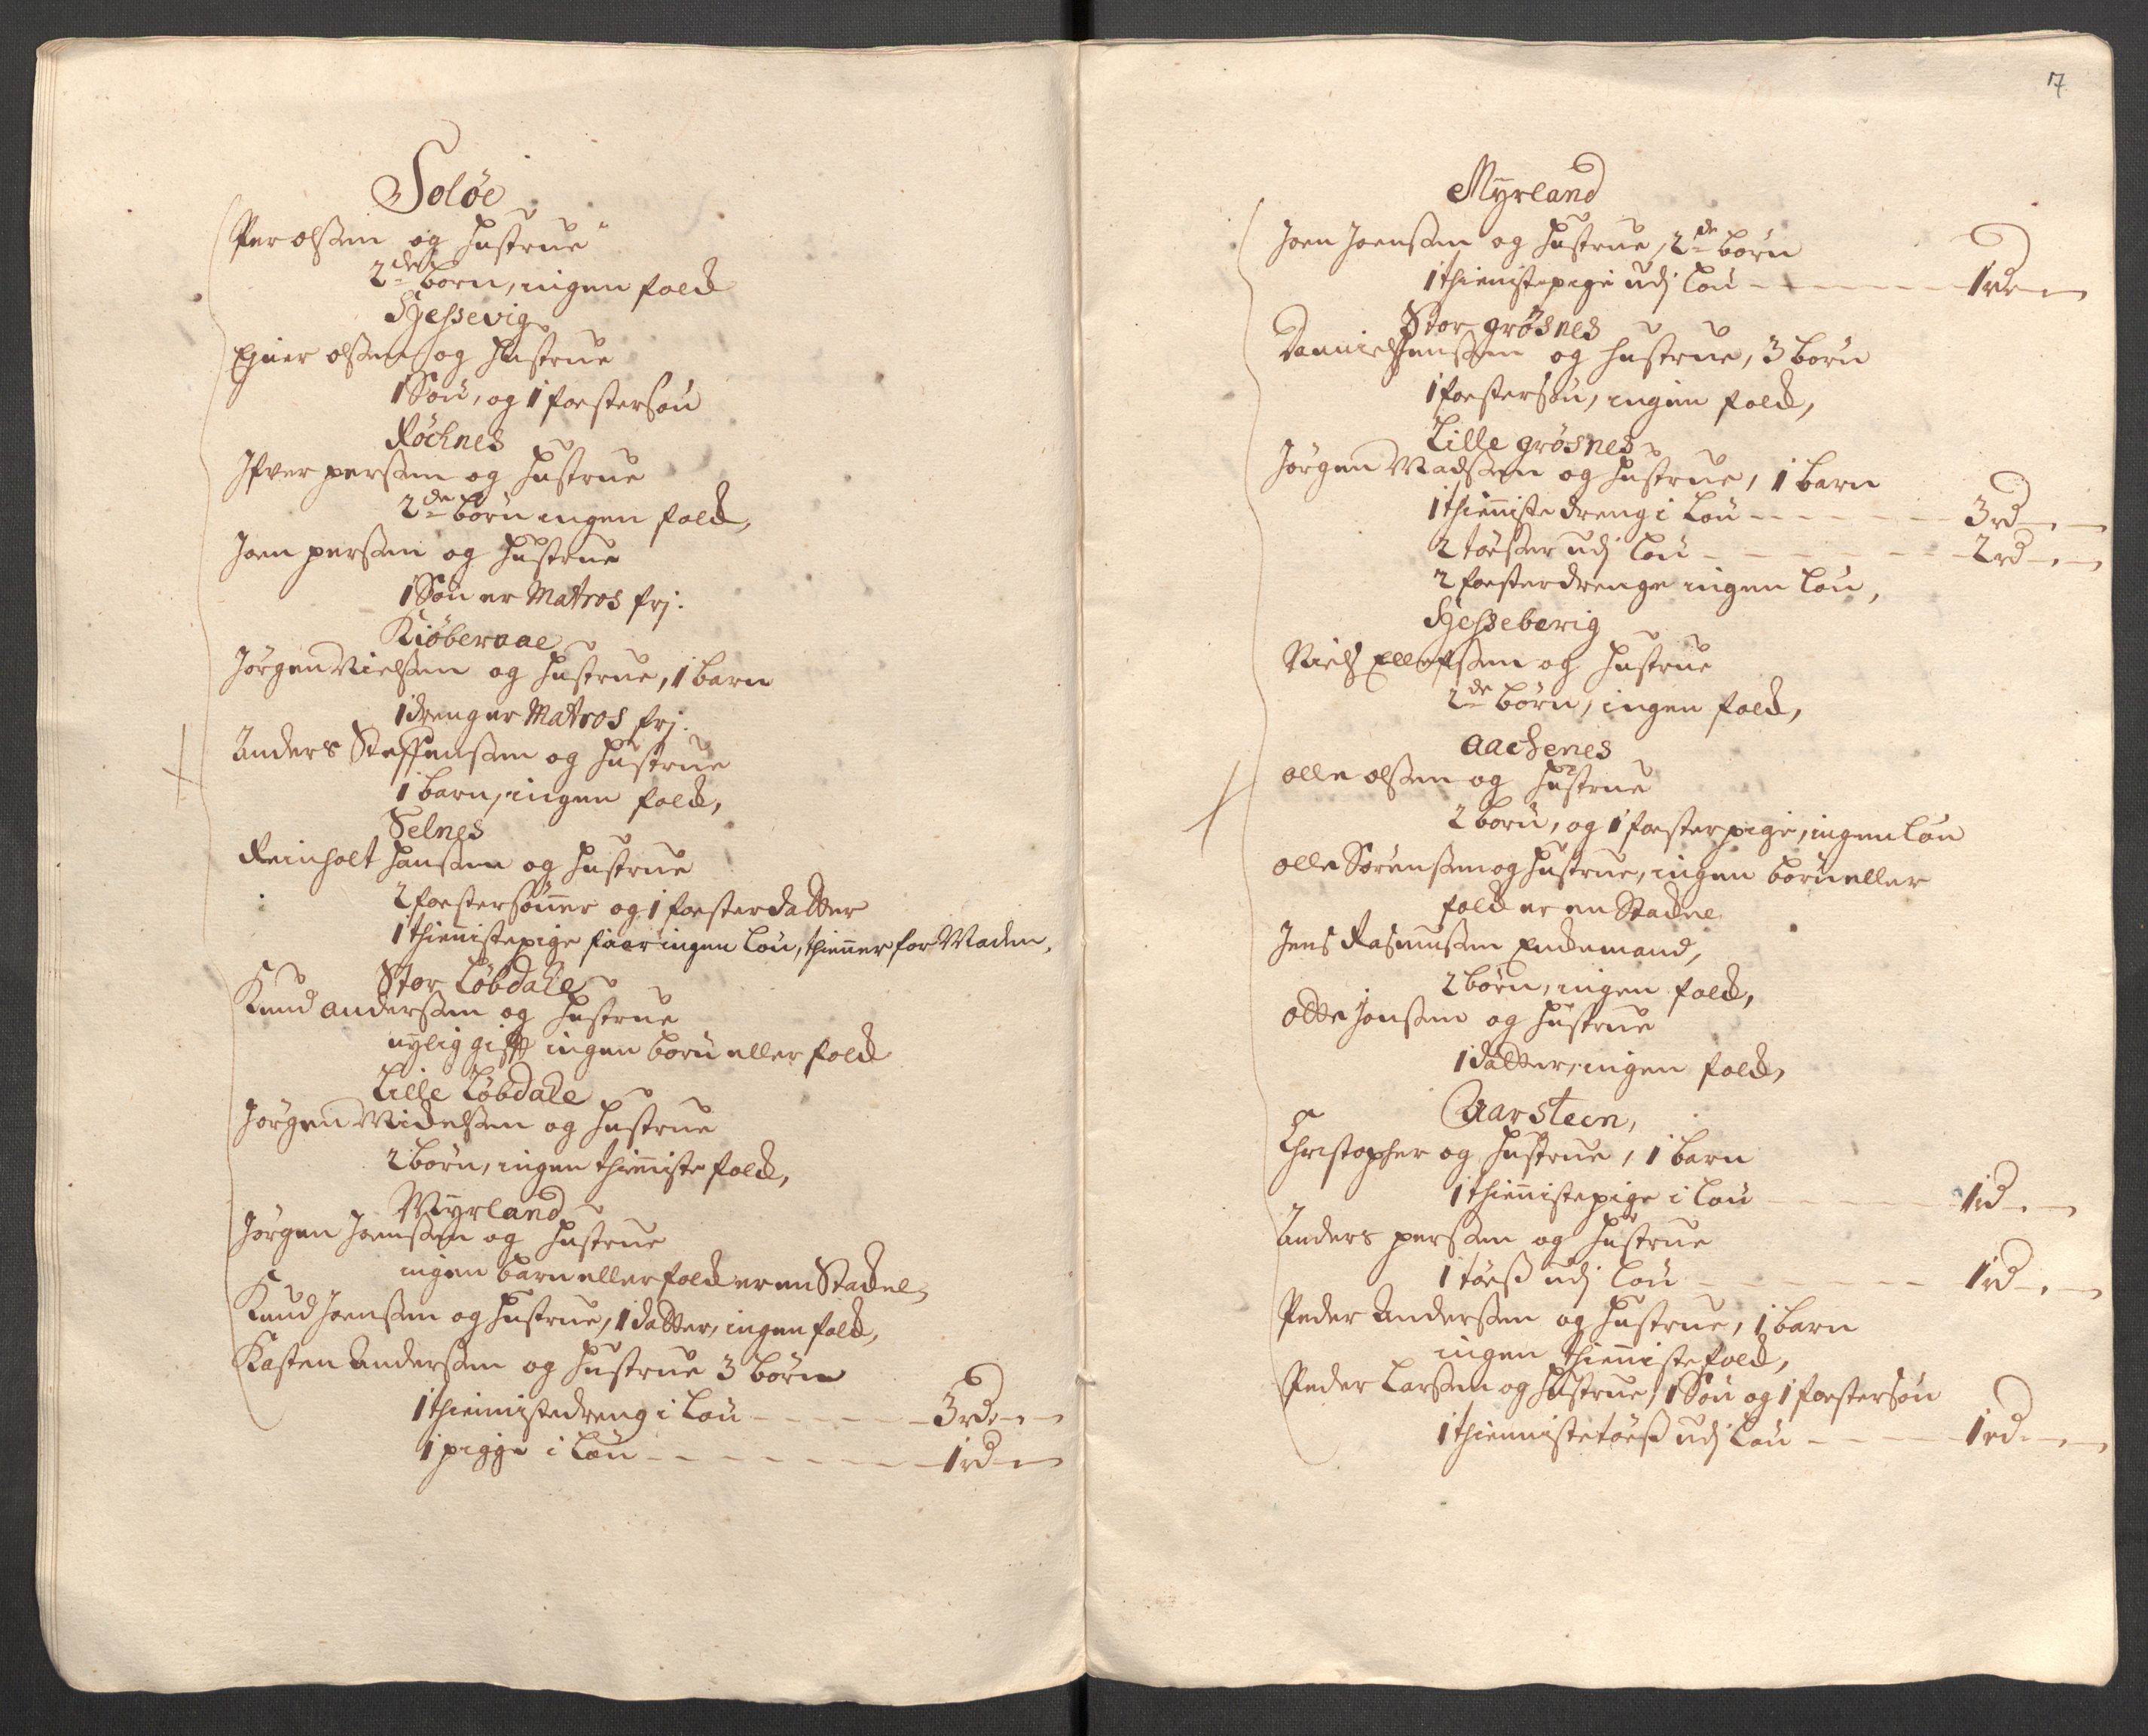 Soløe
Per olssen og Hustrue
2de børn, ingen folck
Hessevig
Ejner olssen og Hustrue
1 Søn, og 1 fostersøn
Røchnes
Ifver perssen og Hustrue
2de børn ingen folck,
Joen perssen og Hustrue
1 Søn er Matros frj.
Kiöbervae
Jørgen Nielssen og Hustrue, 1 barn
1 dreng er Matros frj.
Anders Steffenssen og Hustrue
1 barn, ingen folck,
Selnes
Reinholt Hanssen og Hustrue
2 fostersønner og 1 fosterdatter
1 thienistepige faaer ingen Løn, thienner for Maden,
Stor Løbdale
Knud anderssen og Hustrue
nylig gifft ingen børn eller folck
Lille Løbdale
Jørgen Michelssen og Hustrue
2 børn, ingen thienniste folck,
Myrland
Jørgen Joenssen og Hustrue
ingen barn eller folck er en Stackel,
Knud Joenssen og Hustrue, 1 datter, ingen folck,
Kasten Anderssen og Hustrue 3 børn
1 thiennistedreng i Løn - - - - - 3rd - -
1 pigge i Løn - - - - - - - 1rd - -
7
Myrland
Joen Joenssen og Hustrue, 2de børn
1 thienistepige udj Løn - - - - - - 1rd - -
Stor grøsnes
Danniel Jenssen og Hustrue, 3 børn
1 fostersøn, ingen folck,
Lille grøsnes
Jørgen Madssen og Hustrue, 1 barn
1 thienniste dreng i Løn - - - - - - 3rd - -
2 tøesser udj Løn - - - - - - - 2rd - -
2 fosterdrenge ingen Løn,
Hesseberig
Niels Ellefssen og Hustrue
2de børn, ingen folck,
aachenes
olle olssen og Hustrue
2 børn, og 1 fosterpige, ingen Løn
olle Sørenssen og Hustrue, ingen børn eller
folck er en Stackel
Jens Rasmussen Enckemand,
2 børn, ingen folck,
otte Jonssen og Hustrue
1 datter, ingen folck,
Aarsteen,
Christopher og Hustrue, 1 barn
1 thiennistepige i Løn - - - - - 1rd - -
Anders perssen og Hustrue
1 tøess udj Løn - - - - - - - 1rd - -
Peder Anderssen og Hustrue, 1 barn
ingen thiennistefolck,
Peder Larssen og Hustrue, 1 Søn og 1 fostersøn
1 thiennistetøess udj Løn - - - - 1rd - -